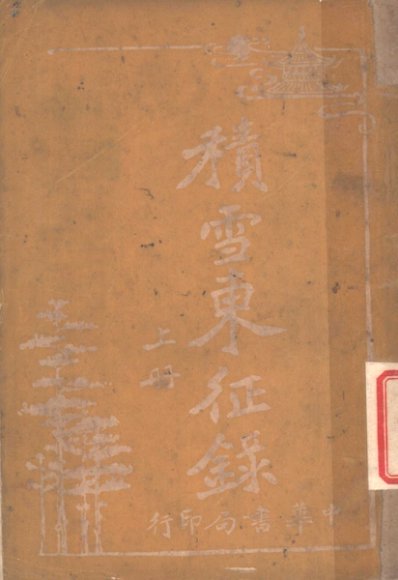 積雪東征錄
上册
中華書局印行